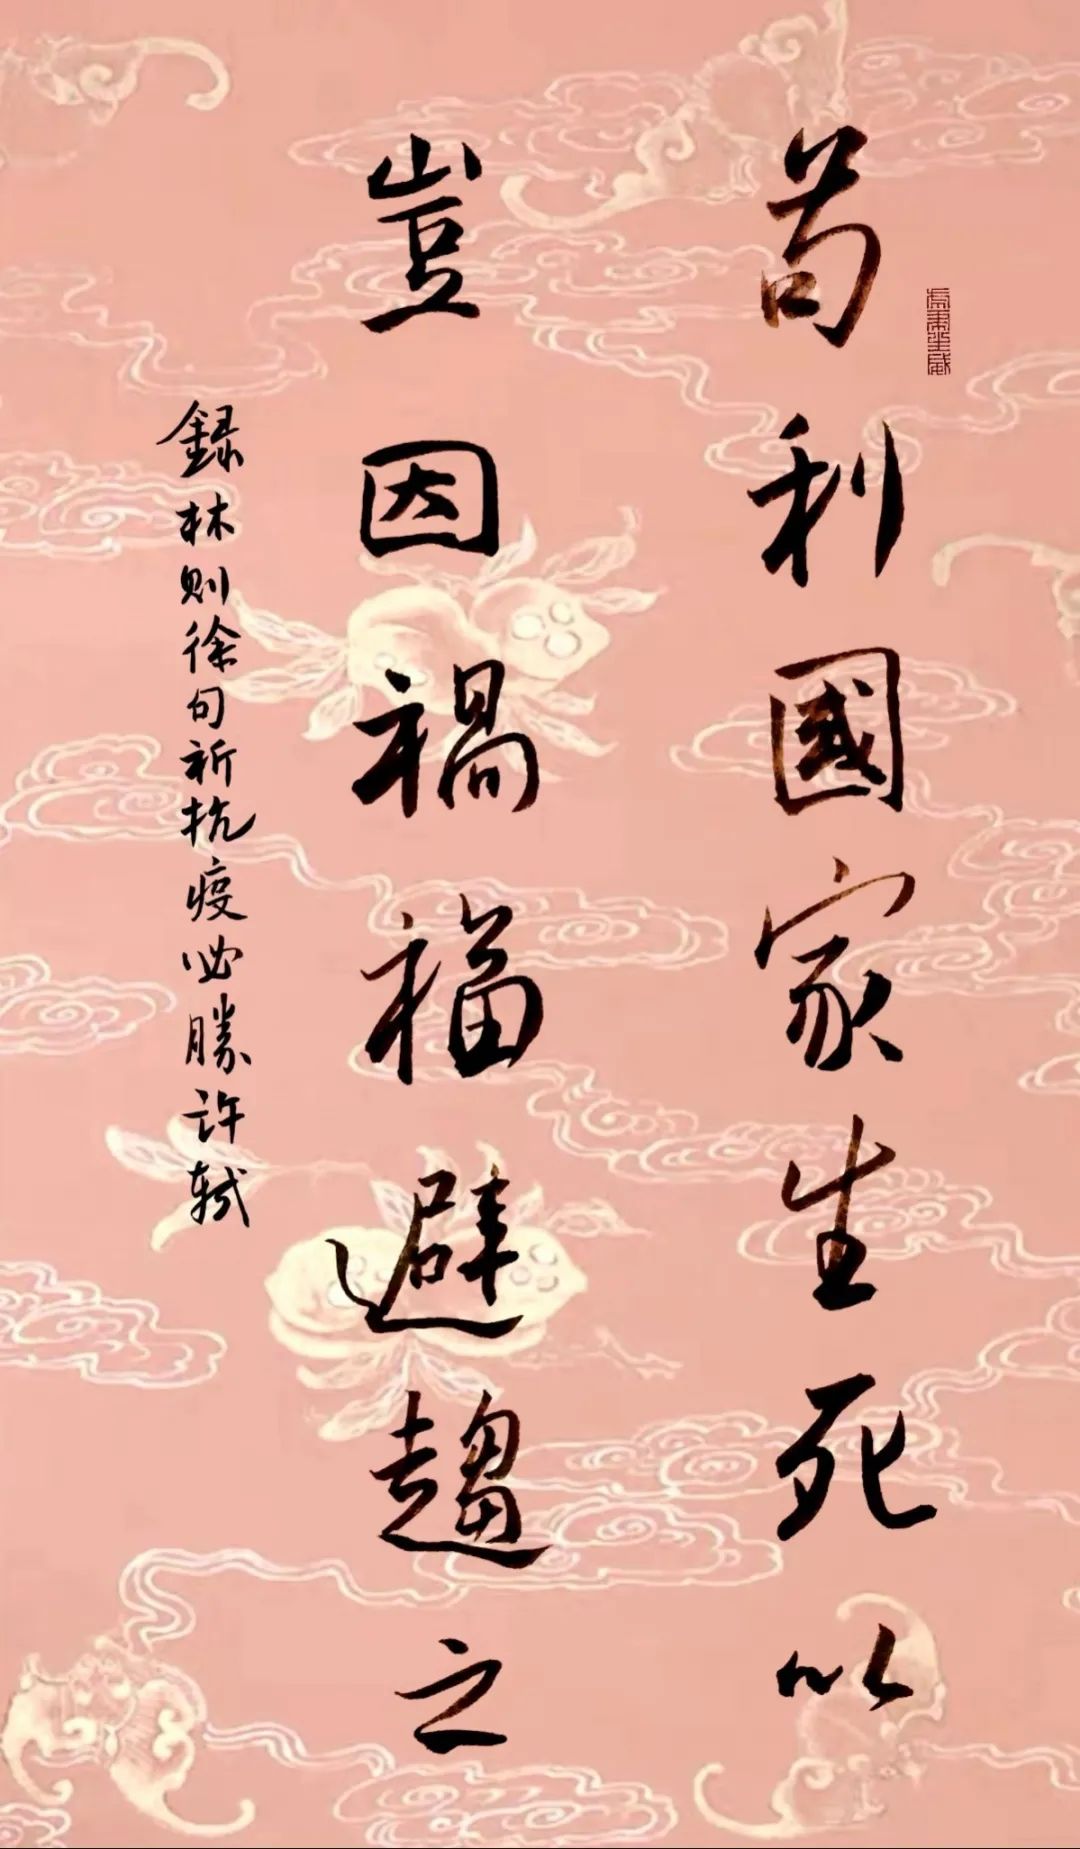 苟利國家生死以
豈因禍福避趨之
録林则徐句祈抗疫必勝许轼